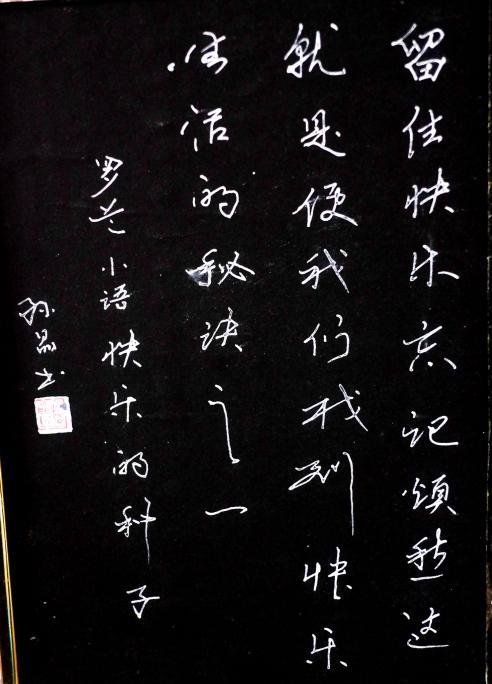 留住快乐忘记烦愁这
就是使我们找到快乐
生活的秘诀之一
罗兰小语快乐的种子
孙晶书